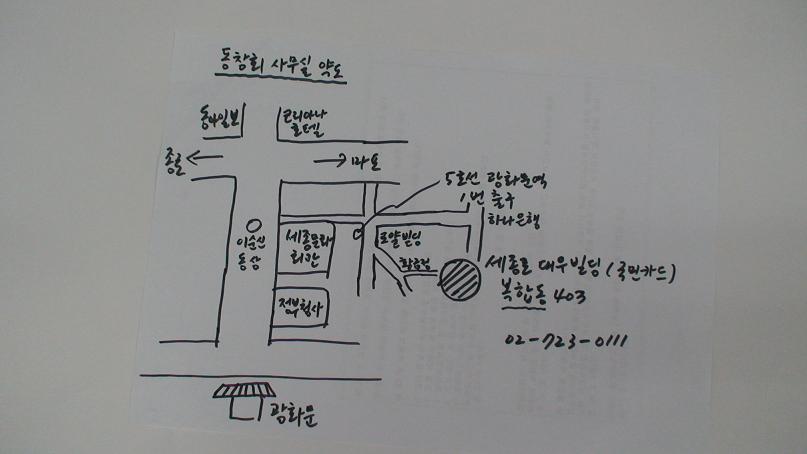 동창회 사무실 약도
동아일보
코리아나
호텔
종로
마포
5호선 광화문역
1번 출구
하나은행
이순신
동상
세종문화
회관
로얄빌딩
세종로 대우빌딩 (국민카드)
복합동 403
정부청사
02-723-0111
광화문